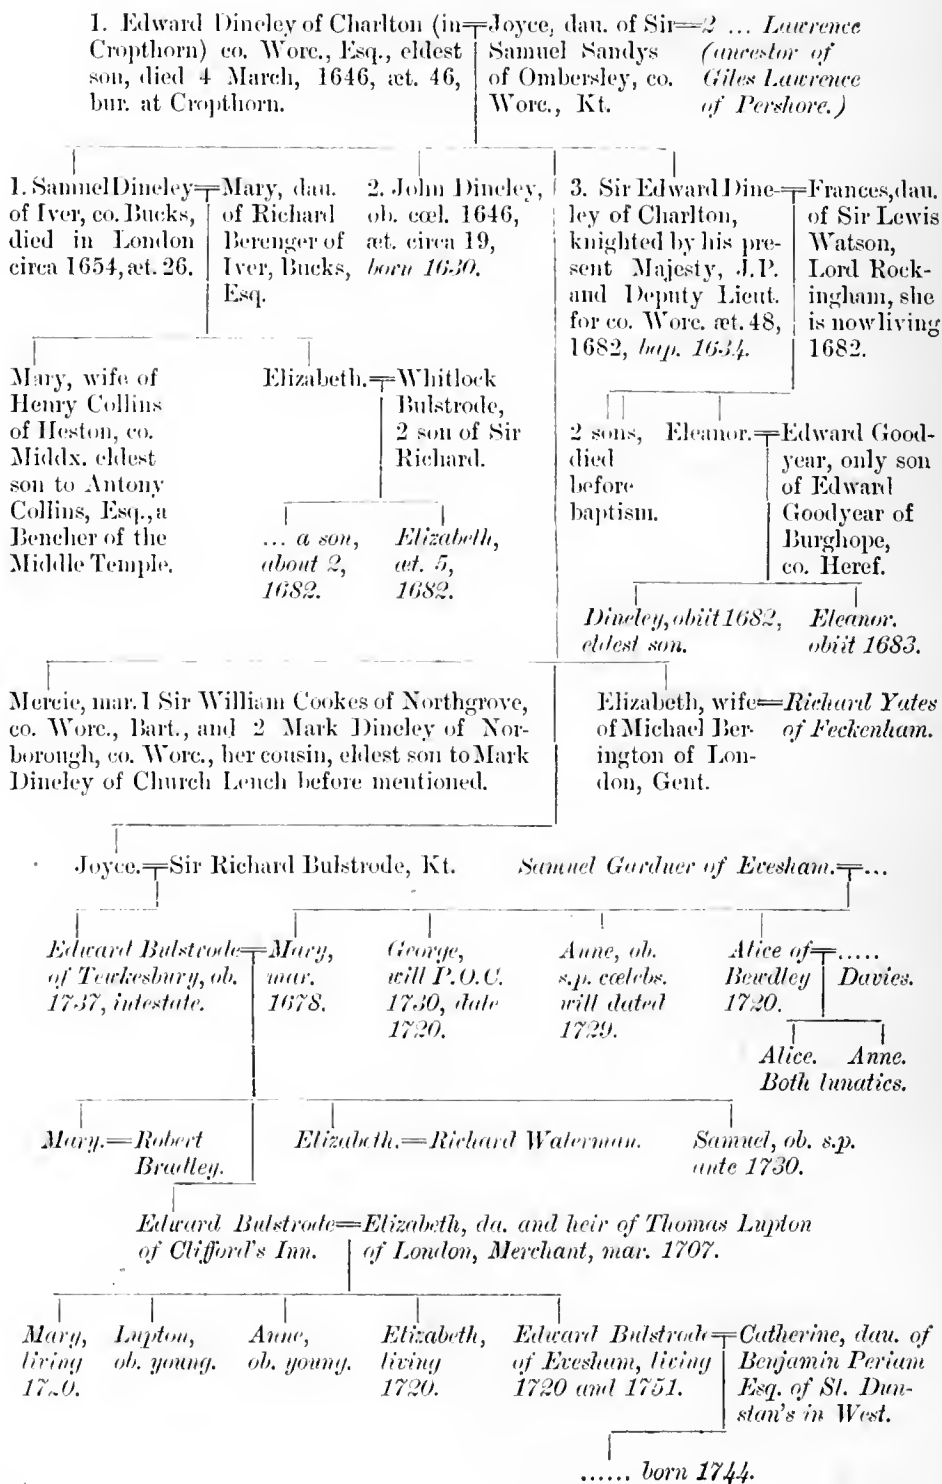 1. Edward Dineley of Charlton (in
Cropthorn) co. Worc., Esq., eldest
son, died 4 March, 1646, æt. 46,
bur. at Cropthorn.
Joyce, dau. of Sir
Samuel Sandys
of Ombersley, co.
Worc., Kt.
2 ... Lawrence
(ancestor of
Giles Lawrence
of Pershore.)
1. Samuel Dineley
of Iver, co. Bucks,
died in London
circa 1654, æt. 26.
Mary, dau.
of Richard
Berenger of
Iver, Bucks,
Esq.
2. John Dineley,
ob. cœl. 1646,
æt. circa 19,
born 1630.
3. Sir Edward Dine-
ley of Charlton,
knighted by his pre-
sent Majesty, J.P.
and Deputy Lieut.
for co. Worc. æt. 48,
1682, bap. 1634.
Frances, dau.
of Sir Lewis
Watson,
Lord Rock-
ingham, she
is now living
1682.
Mary, wife of
Henry Collins
of Heston, co.
Middx. eldest
son to Antony
Collins, Esq., a
Bencher of the
Middle Temple.
Elizabeth.
Whitlock
Bulstrode,
2 son of Sir
Richard.
2 sons,
died
before
baptism.
Eleanor.
Edward Good-
year, only son
of Edward
Goodyear of
Burghope,
co. Heref.
... a son,
about 2,
1682.
Elizabeth,
æt. 5,
1682.
Dineley, obiit 1682,
eldest son.
Eleanor.
obiit 1683.
Mercie, mar. 1 Sir William Cookes of Northgrove,
co. Worc., Bart., and 2 Mark Dineley of Nor-
borough, co. Worc., her cousin, eldest son to Mark
Dineley of Church Lench before mentioned.
Elizabeth, wife
of Michael Ber-
ington of Lon-
don, Gent.
Richard Yates
of Feckenham.
Joyce.
Sir Richard Bulstrode, Kt.
Samuel Gardner of Evesham.
...
Edward Bulstrode
of Tewkesbury, ob.
1737, intestate.
Mary,
mar.
1678.
George,
will P.O.C.
1730, date
1720.
Anne, ob.
s.p. cœlebs.
will dated
1729.
Alice of
Bewdley
1720.
.....
Davies.
Alice. Anne.
Both lunatics.
Mary.
Robert
Bradley.
Elizabeth.
Richard Waterman.
Samuel, ob. s.p.
ante 1730.
Edward Bulstrode
of Clifford's Inn.
Elizabeth, da. and heir of Thomas Lupton
of London, Merchant, mar. 1707.
Mary,
living
Lupton,
ob. young.
Anne,
ob. young.
Elizabeth,
living
1720.
Edward Bulstrode
of Evesham, living
1720 and 1751.
Catherine, dau. of
Benjamin Periam
Esq. of St. Dun-
stan's in West.
...... born 1744.